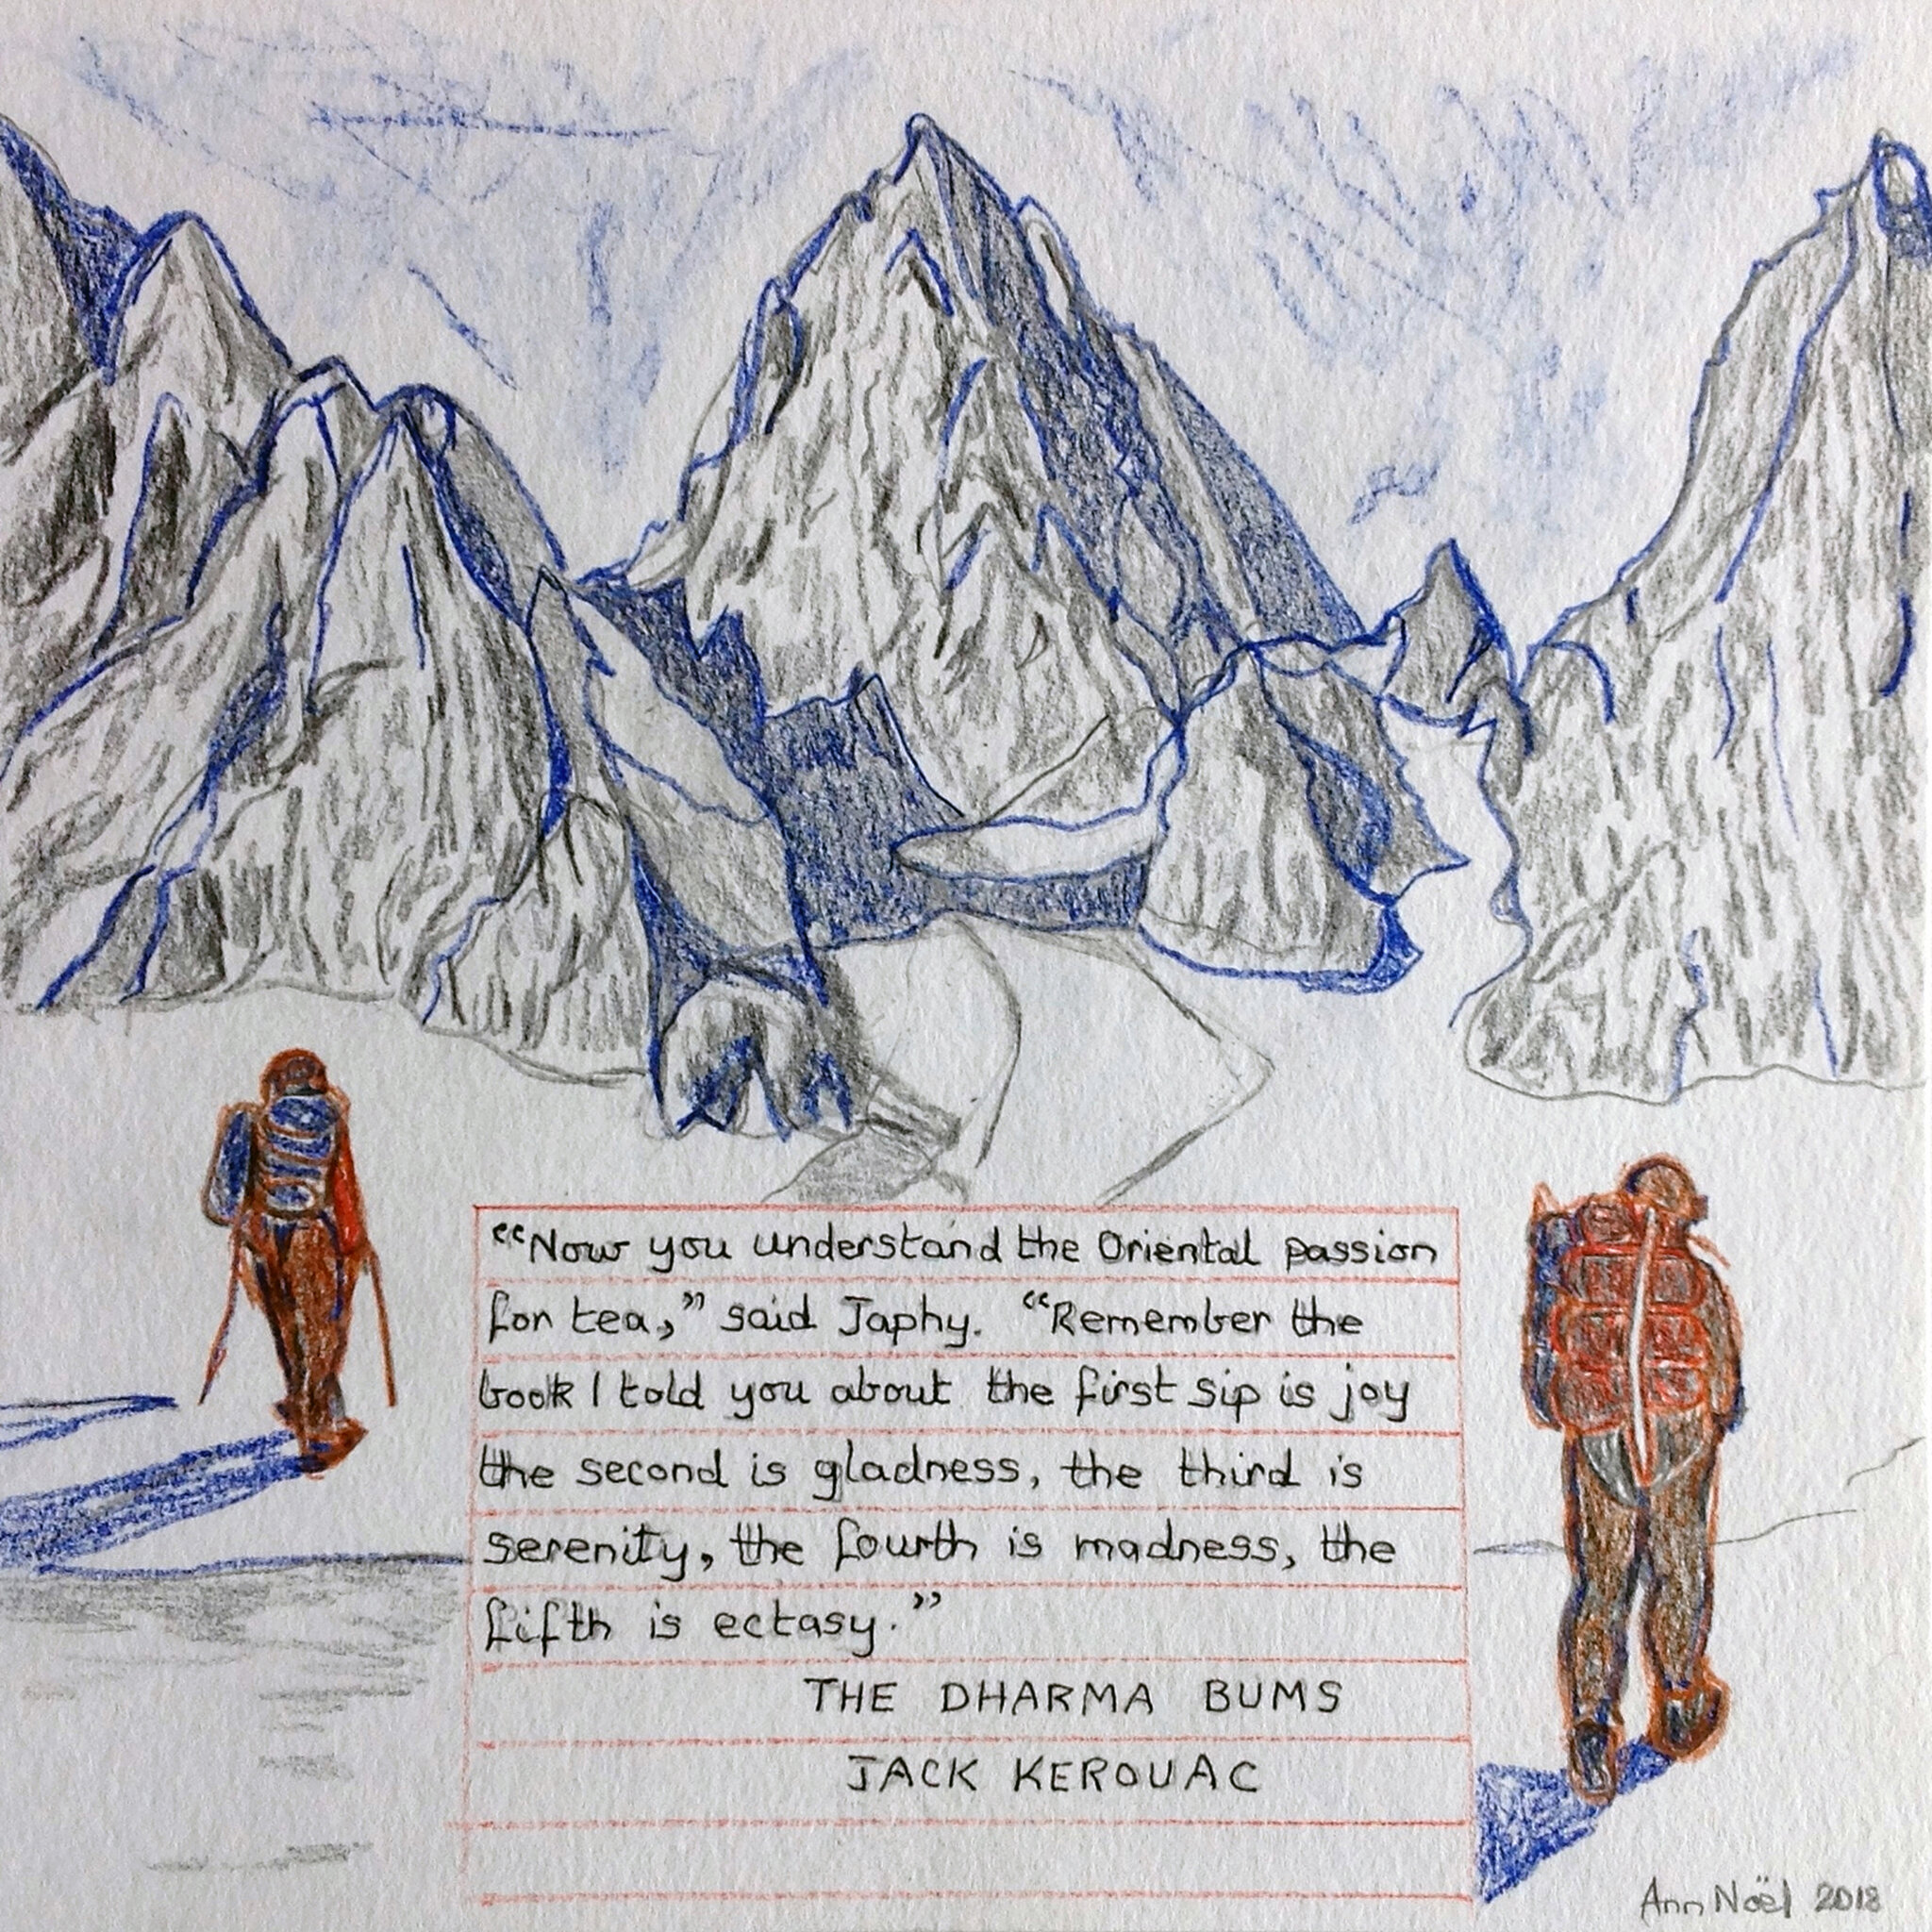 “Now you understand the Oriental passion
for tea,” said Japhy. “Remember the
book I told you about the first sip is joy
the second is gladness, the third is
serenity, the fourth is madness, the
fifth is ectasy.”
THE DHARMA BUMS
JACK KEROUAC
Ann Noël 2018